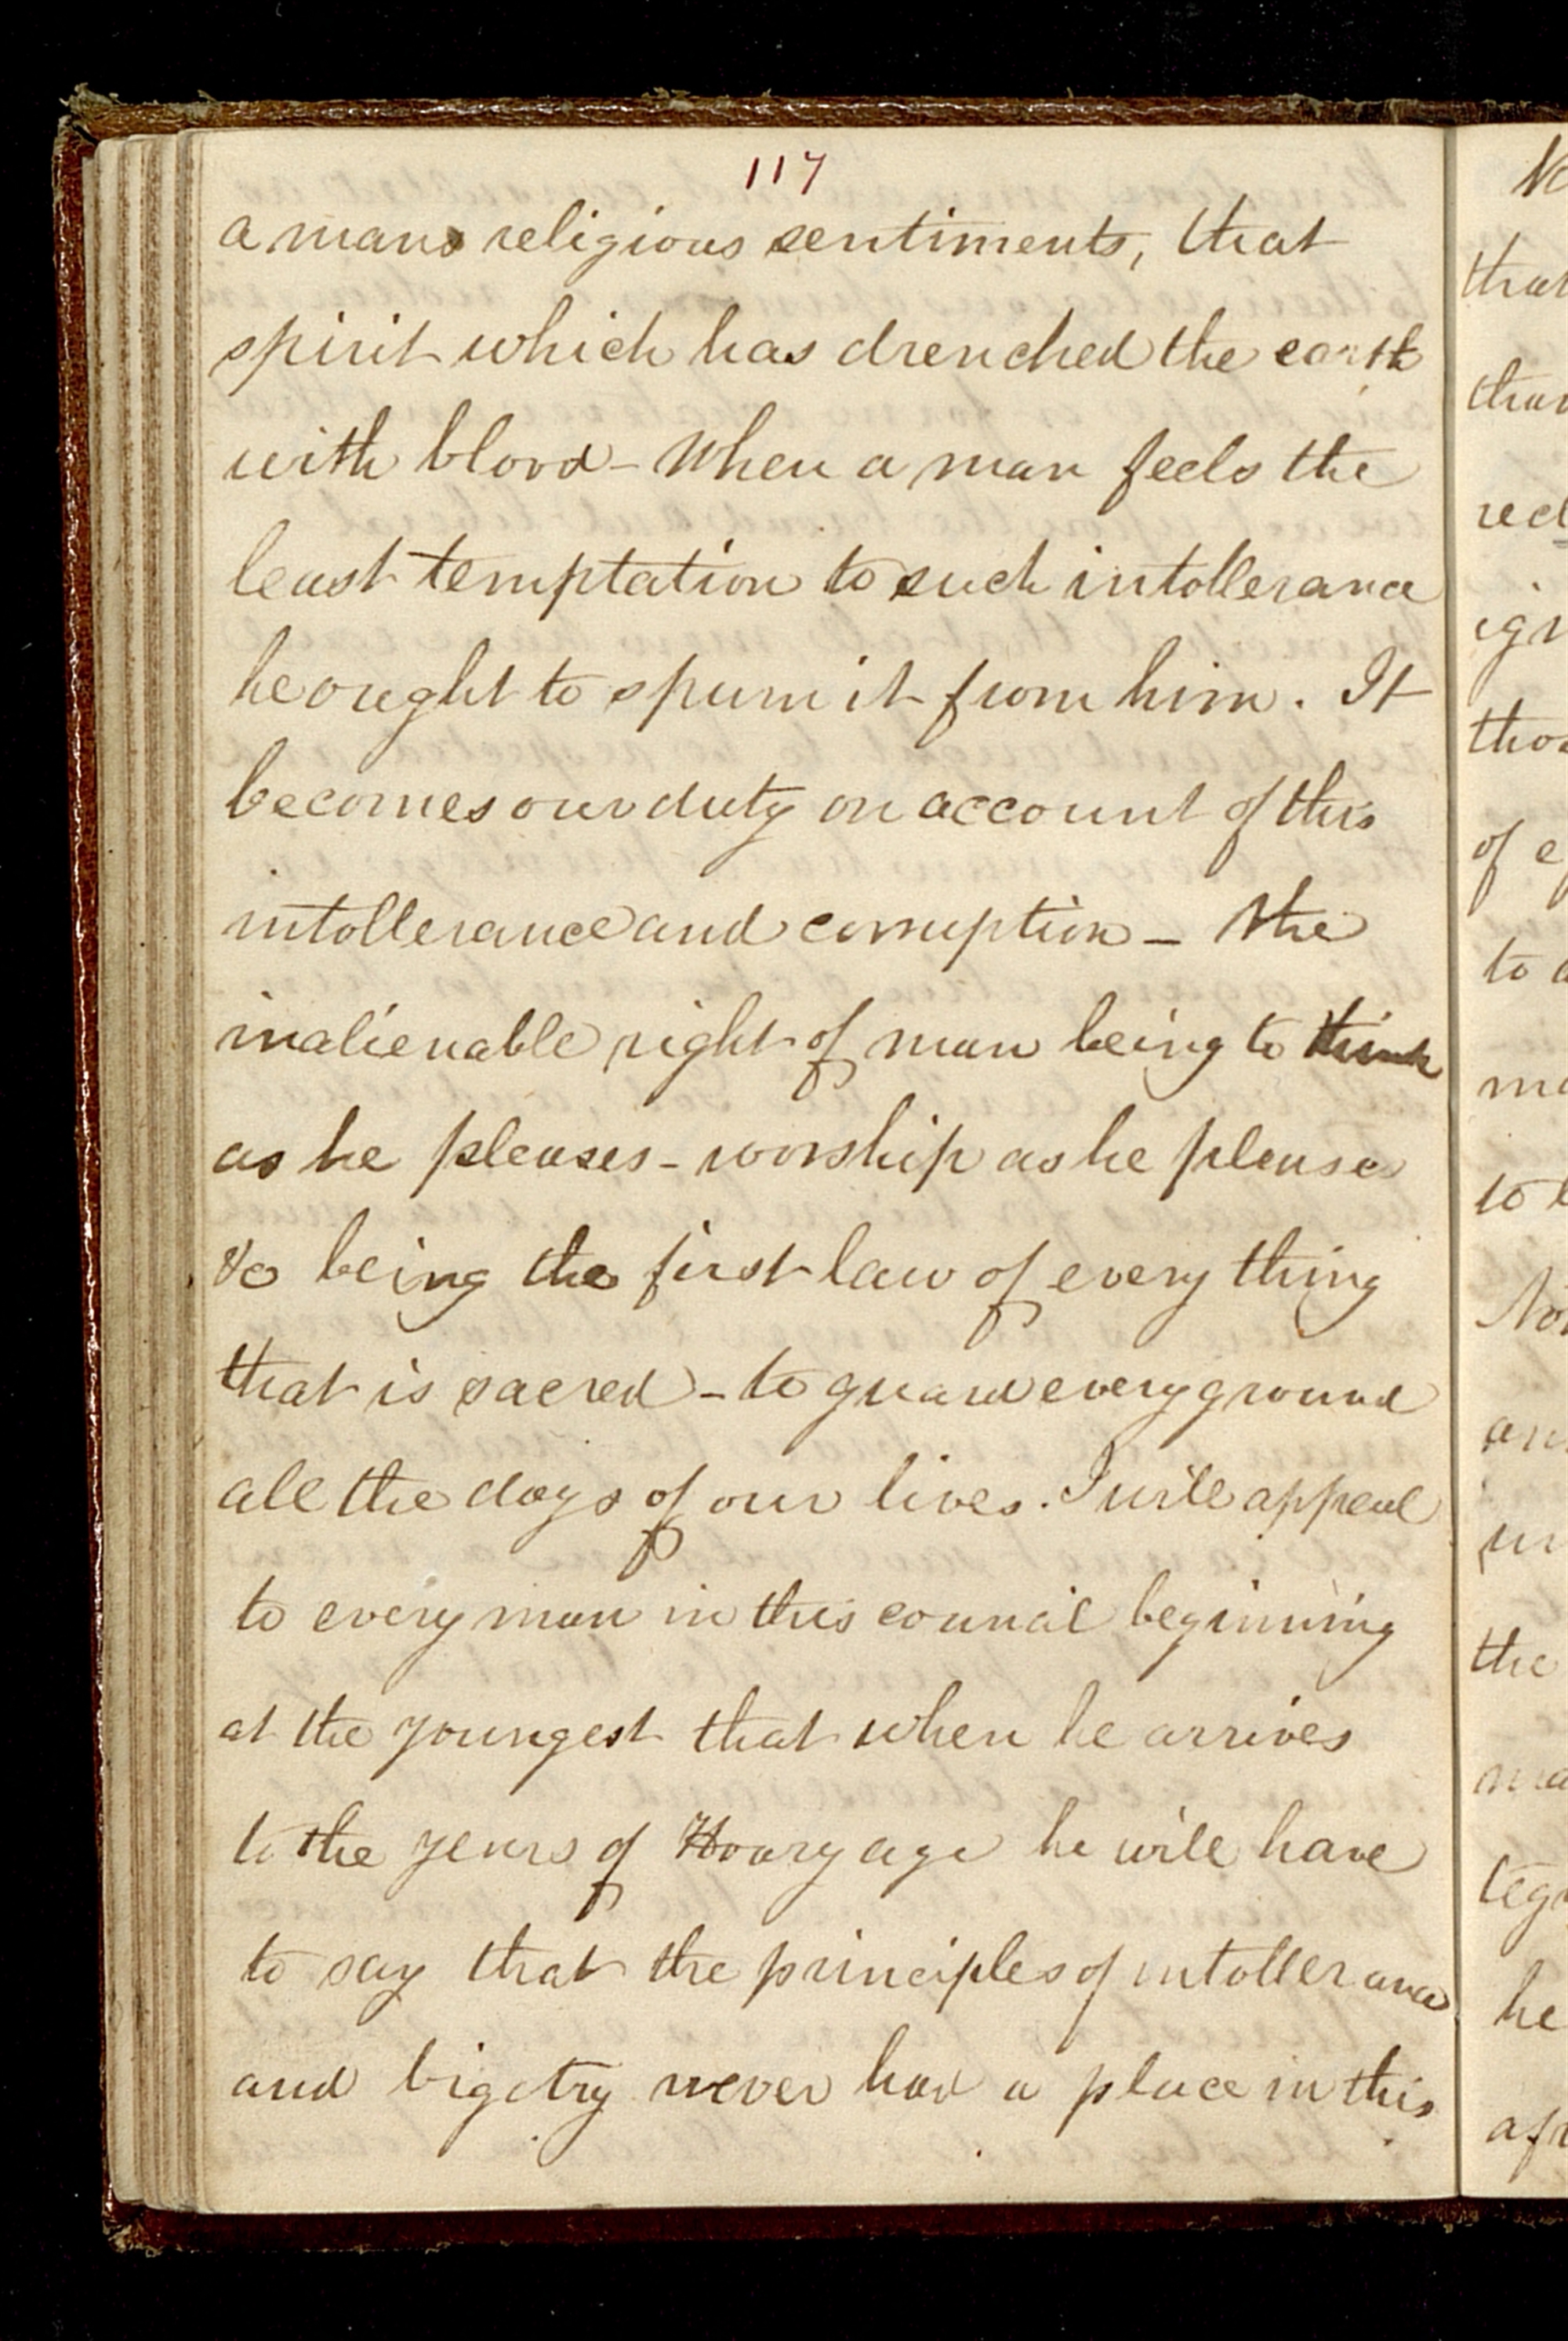 117
a mans religious sentiments, that
spirit which has drenched the earth
with blood - When a man feels the
least temptation to such intollerance
he ought to spurn it from him. It
becomes our duty on account of this
intollerance and corruption - the
inalienable right of man being to think
as he pleases - worship as he pleases
&c being the first law of every thing
that is sacred - to guard every ground
all the days of our lives. I will appeal
to every man in this council beginning
at the youngest that when he arrives
to the years of Hoary age he will have
to say that the principles of intollerance
and bigotry never had a place in this